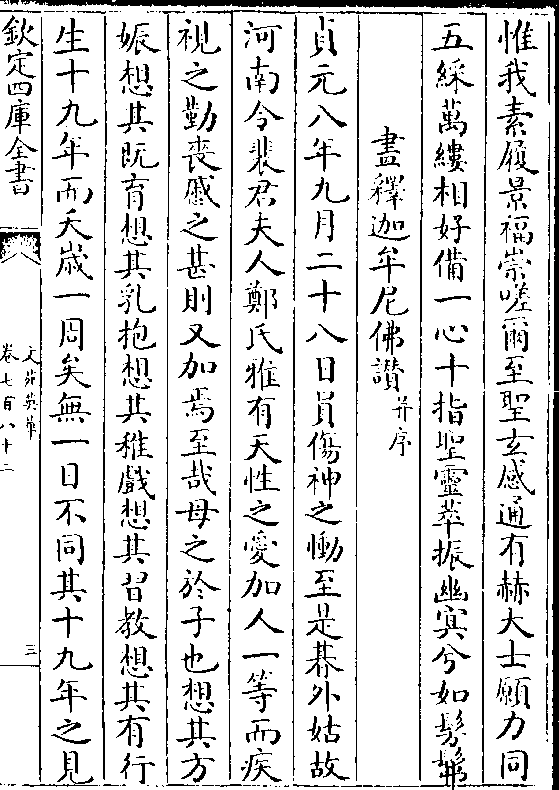 惟我素履景福崇嗟爾至聖玄感通有赫大士願力同
五綵萬縷相好備一心十指聖靈萃振幽冥兮如髣髴
畫釋迦牟尼佛讃并序
貞元八年九月二十八日貟傷神之慟至是朞外姑故
河南令裴君夫人鄭氏雅有天性之愛加人一等而疾
視之勤喪戚之甚則又加焉至哉母之於子也想其方
娠想其既育想其乳抱想其稚戲想其習教想其有行
生十九年而夭歳一周矣無一日不同其十九年之見
欽定四庫全書
文苑英華
卷七百八十二
三